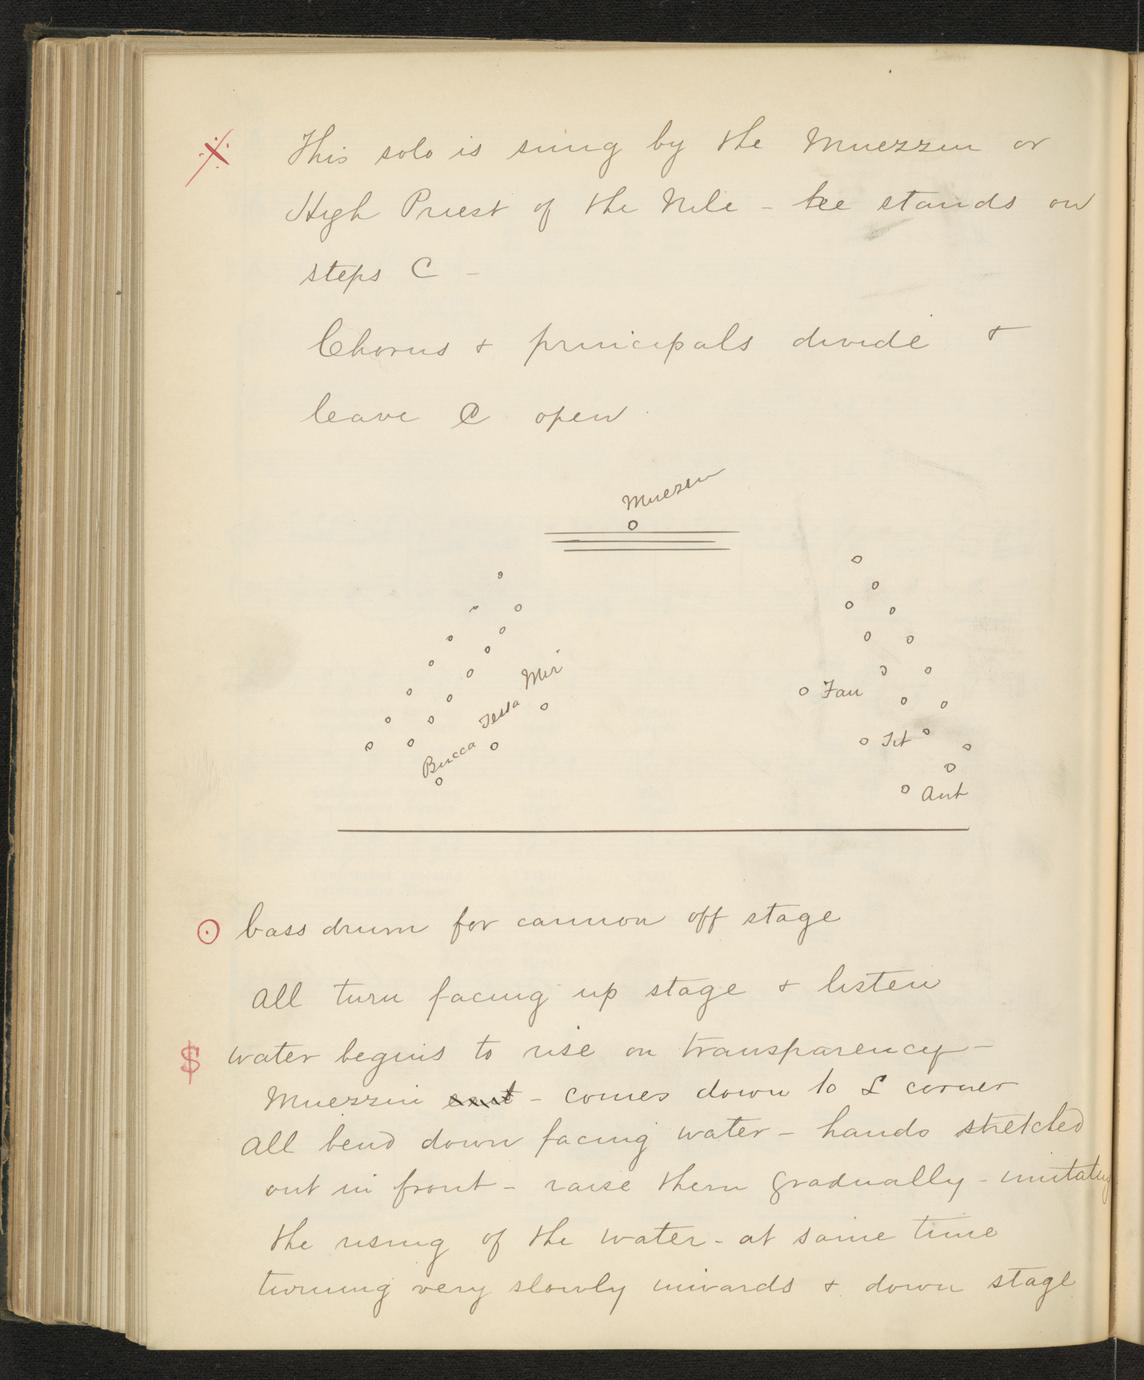 This solo is sung by the Muezzin or
High Priest of the Nile - he stands on
steps C -
Chorus & principals divide &
leave C open
Muezin
Mir
Tessa
Bucca
Fan
Tit
Ant
bass drum for cannon off stage
All turn facing up stage & listen
$ water begins to rise on transparency -
Muezzin - comes down to L corner
All bend down facing water - hands stretched
out in front - raise them gradually - imitating
the rising of the water - at same time
turning very slowly inwards & down stage